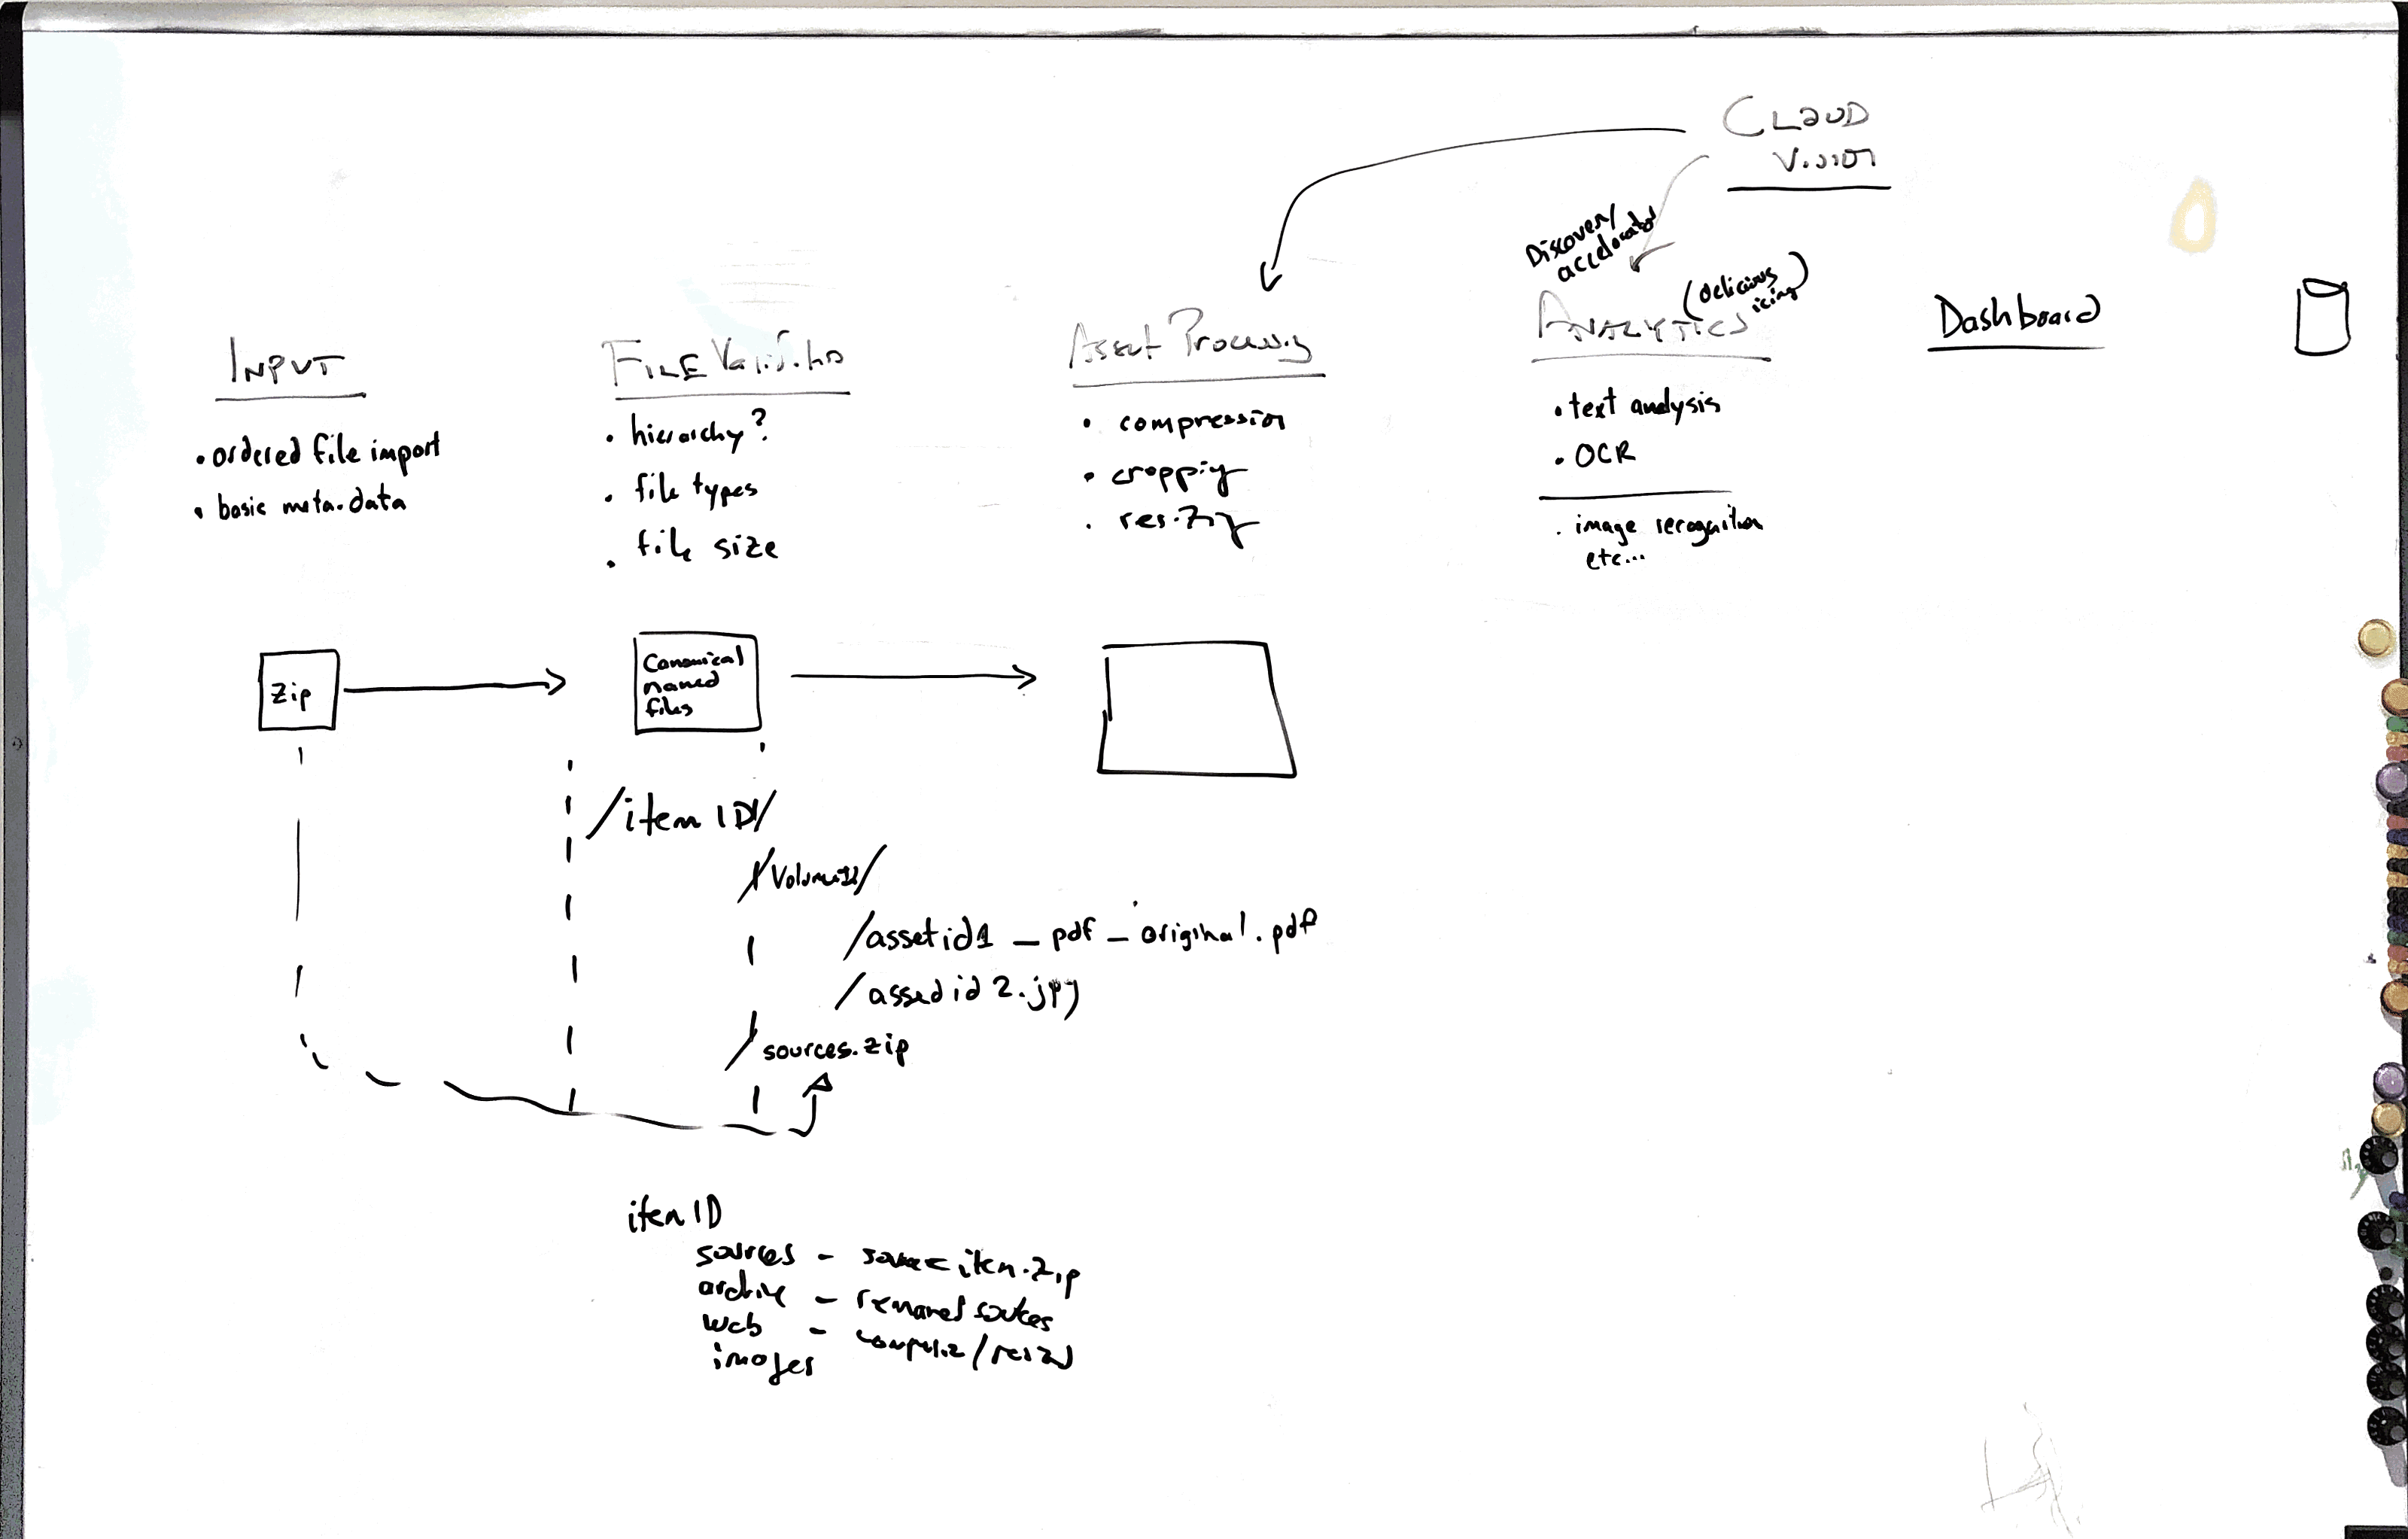 CLOUD
VISION
Discovery
accelorator
(delicious
icing)
INPUT
• ordered file import
• basic meta-data
FILE Validation
• hierarchy?
• file types
• file size
Asset Processing
• compression
• cropping
• resizing
ANALYTICS
• text analysis
• OCR
• image recognition
etc...
Dashboard
Zip
Canonical
named
files
/item ID/
/Volume
/assetid1_pdf_original.pdf
/assetid2.jpg
/sources.zip
item ID
sources - source item.zip
archive - renamed sources
web -
images